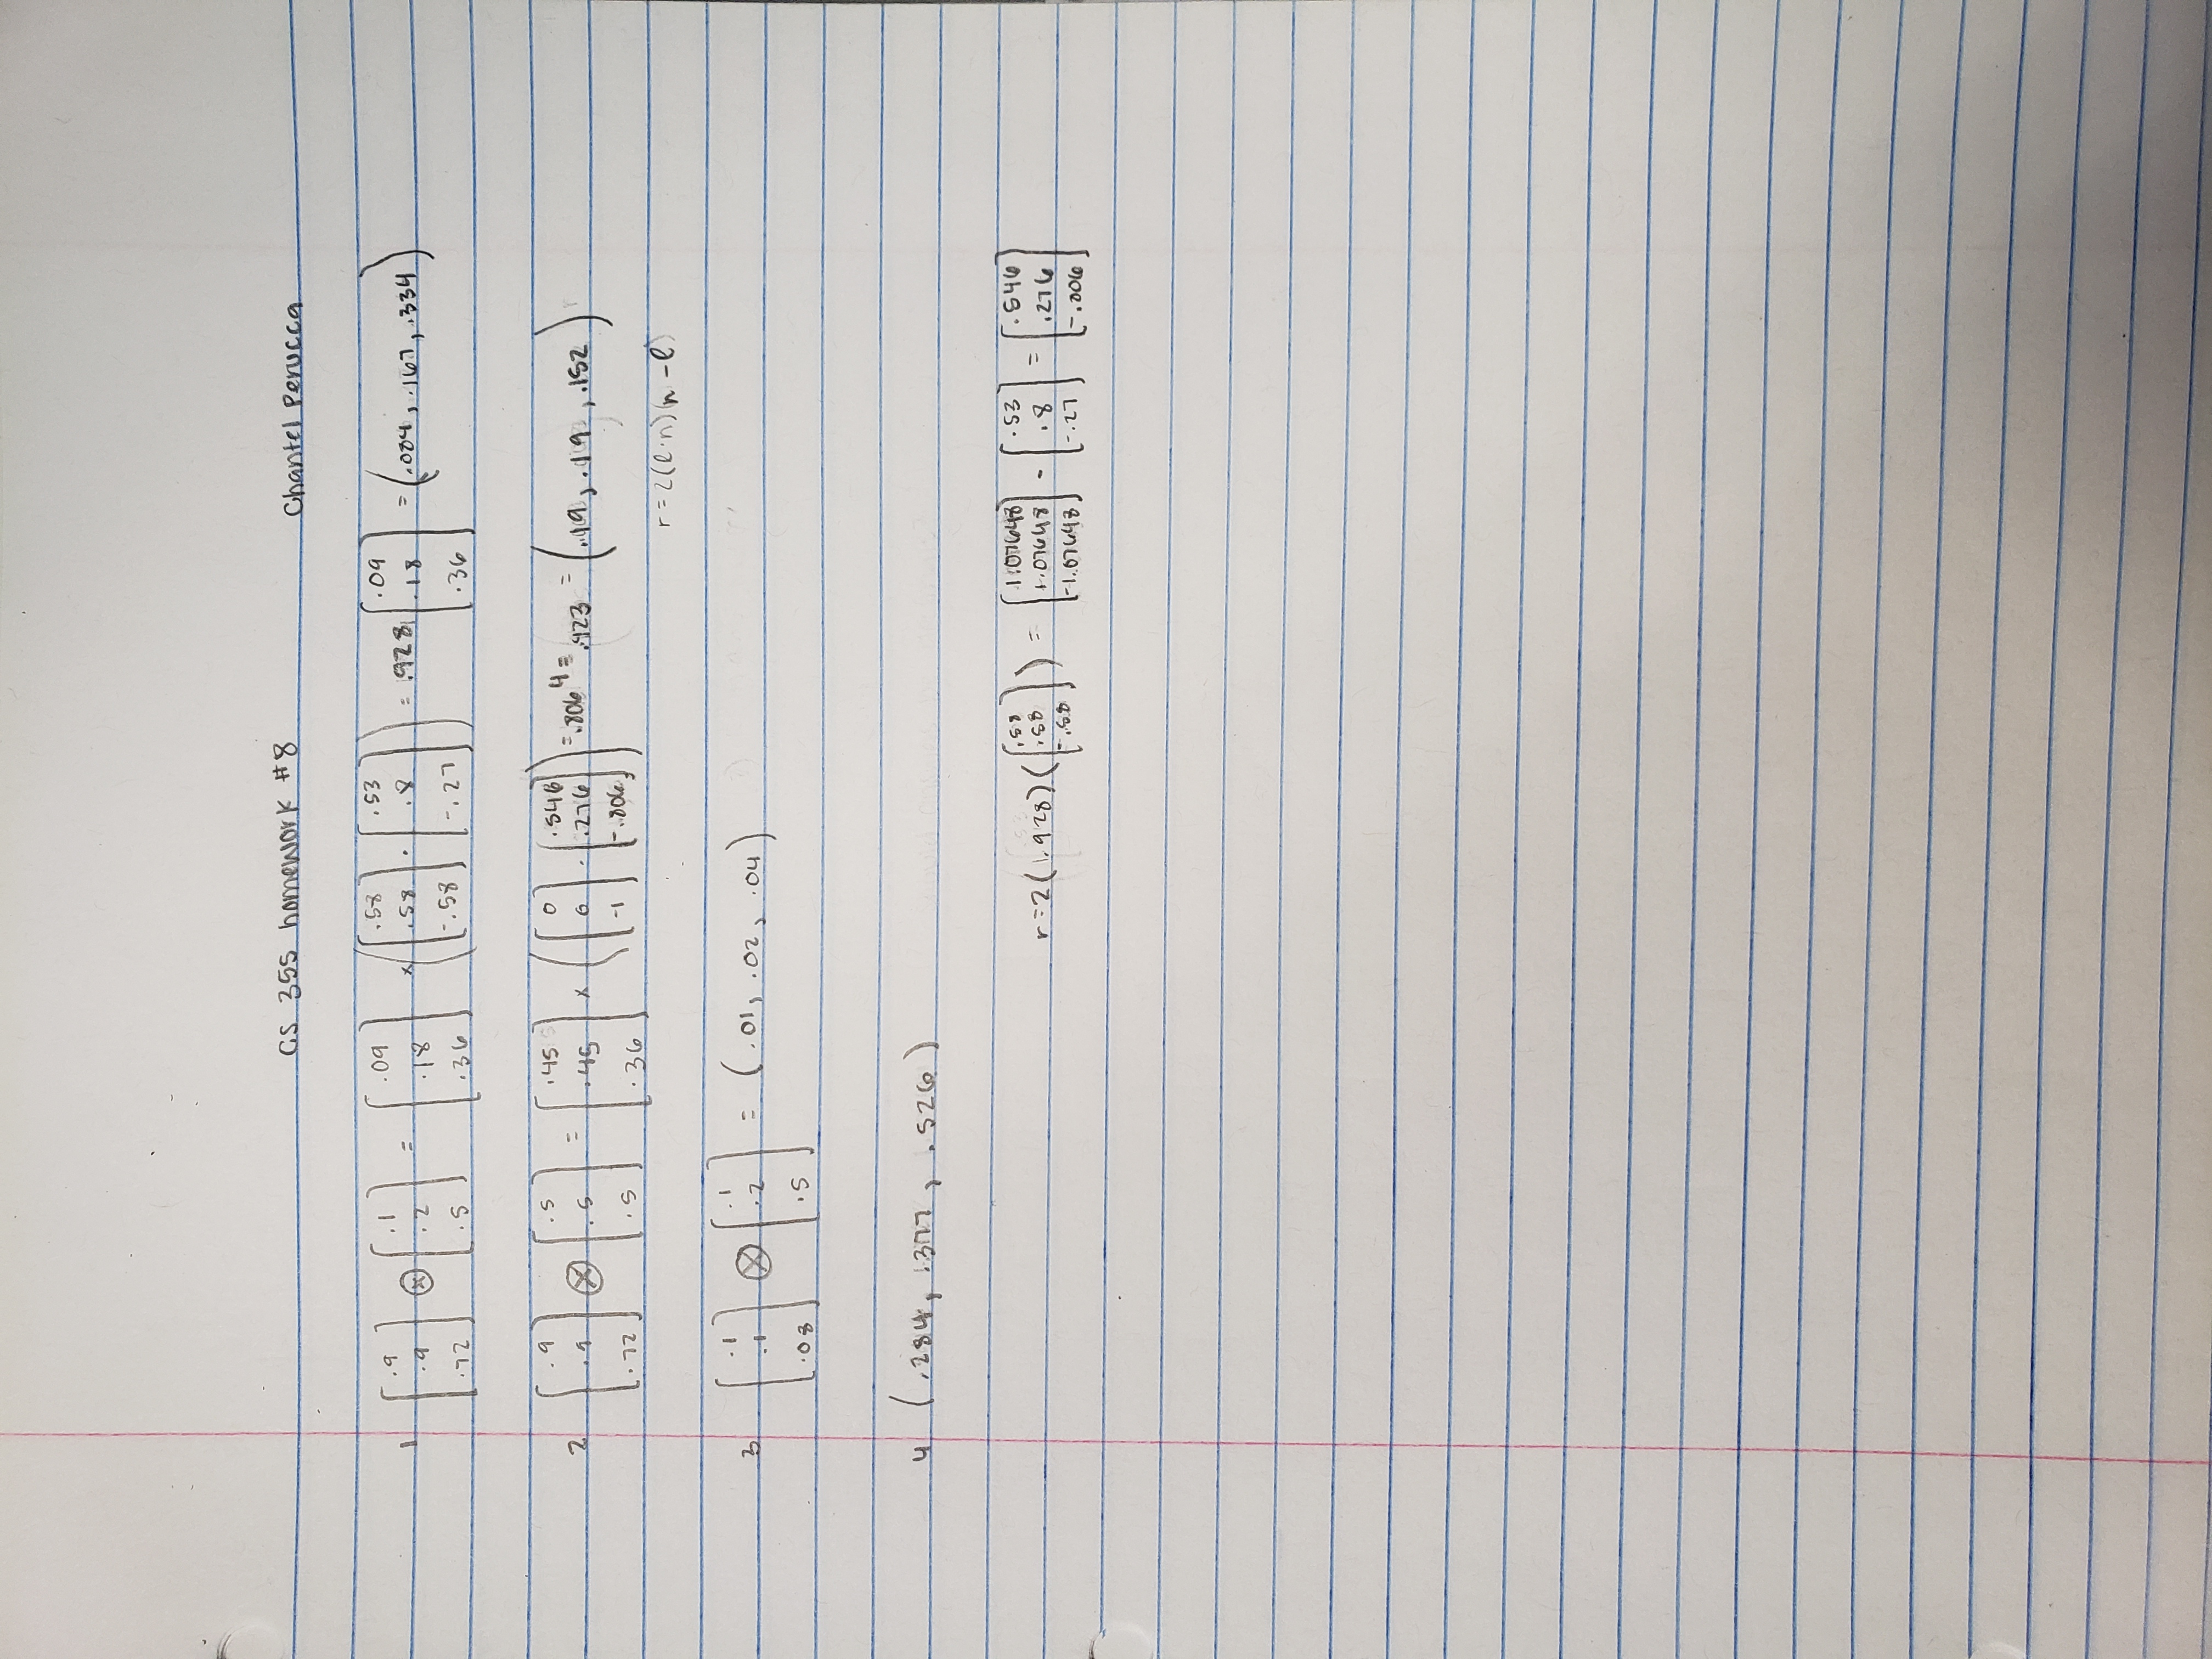 CS 355 homework #8 Chantel Perucca
1 [.9 .9 .72] ⊗ [.1 .2 .5] = [.09 .18 .36] × ([.58 .58 -.58] · [.53 .8 -.27]) = .928 [.09 .18 .36] = (.084, .167, .334)
2 [.9 .9 .72] ⊗ [.5 .5 .5] = [.45 .45 .36] × ([0 0 -1] · [.546 .276 -.806]) = .806⁴ = .423 = (.19, .19, .152)
r = 2(l·n)(n - l)
3 [.1 .1 .08] ⊗ [.1 .2 .5] = (.01, .02, .04)
4 (.284, .377, .526)
r = 2(.928)([.58 .58 -.58]) = [1.07648 1.07648 -1.07648] - [.53 .8 -.27] = [.546 .276 -.806]